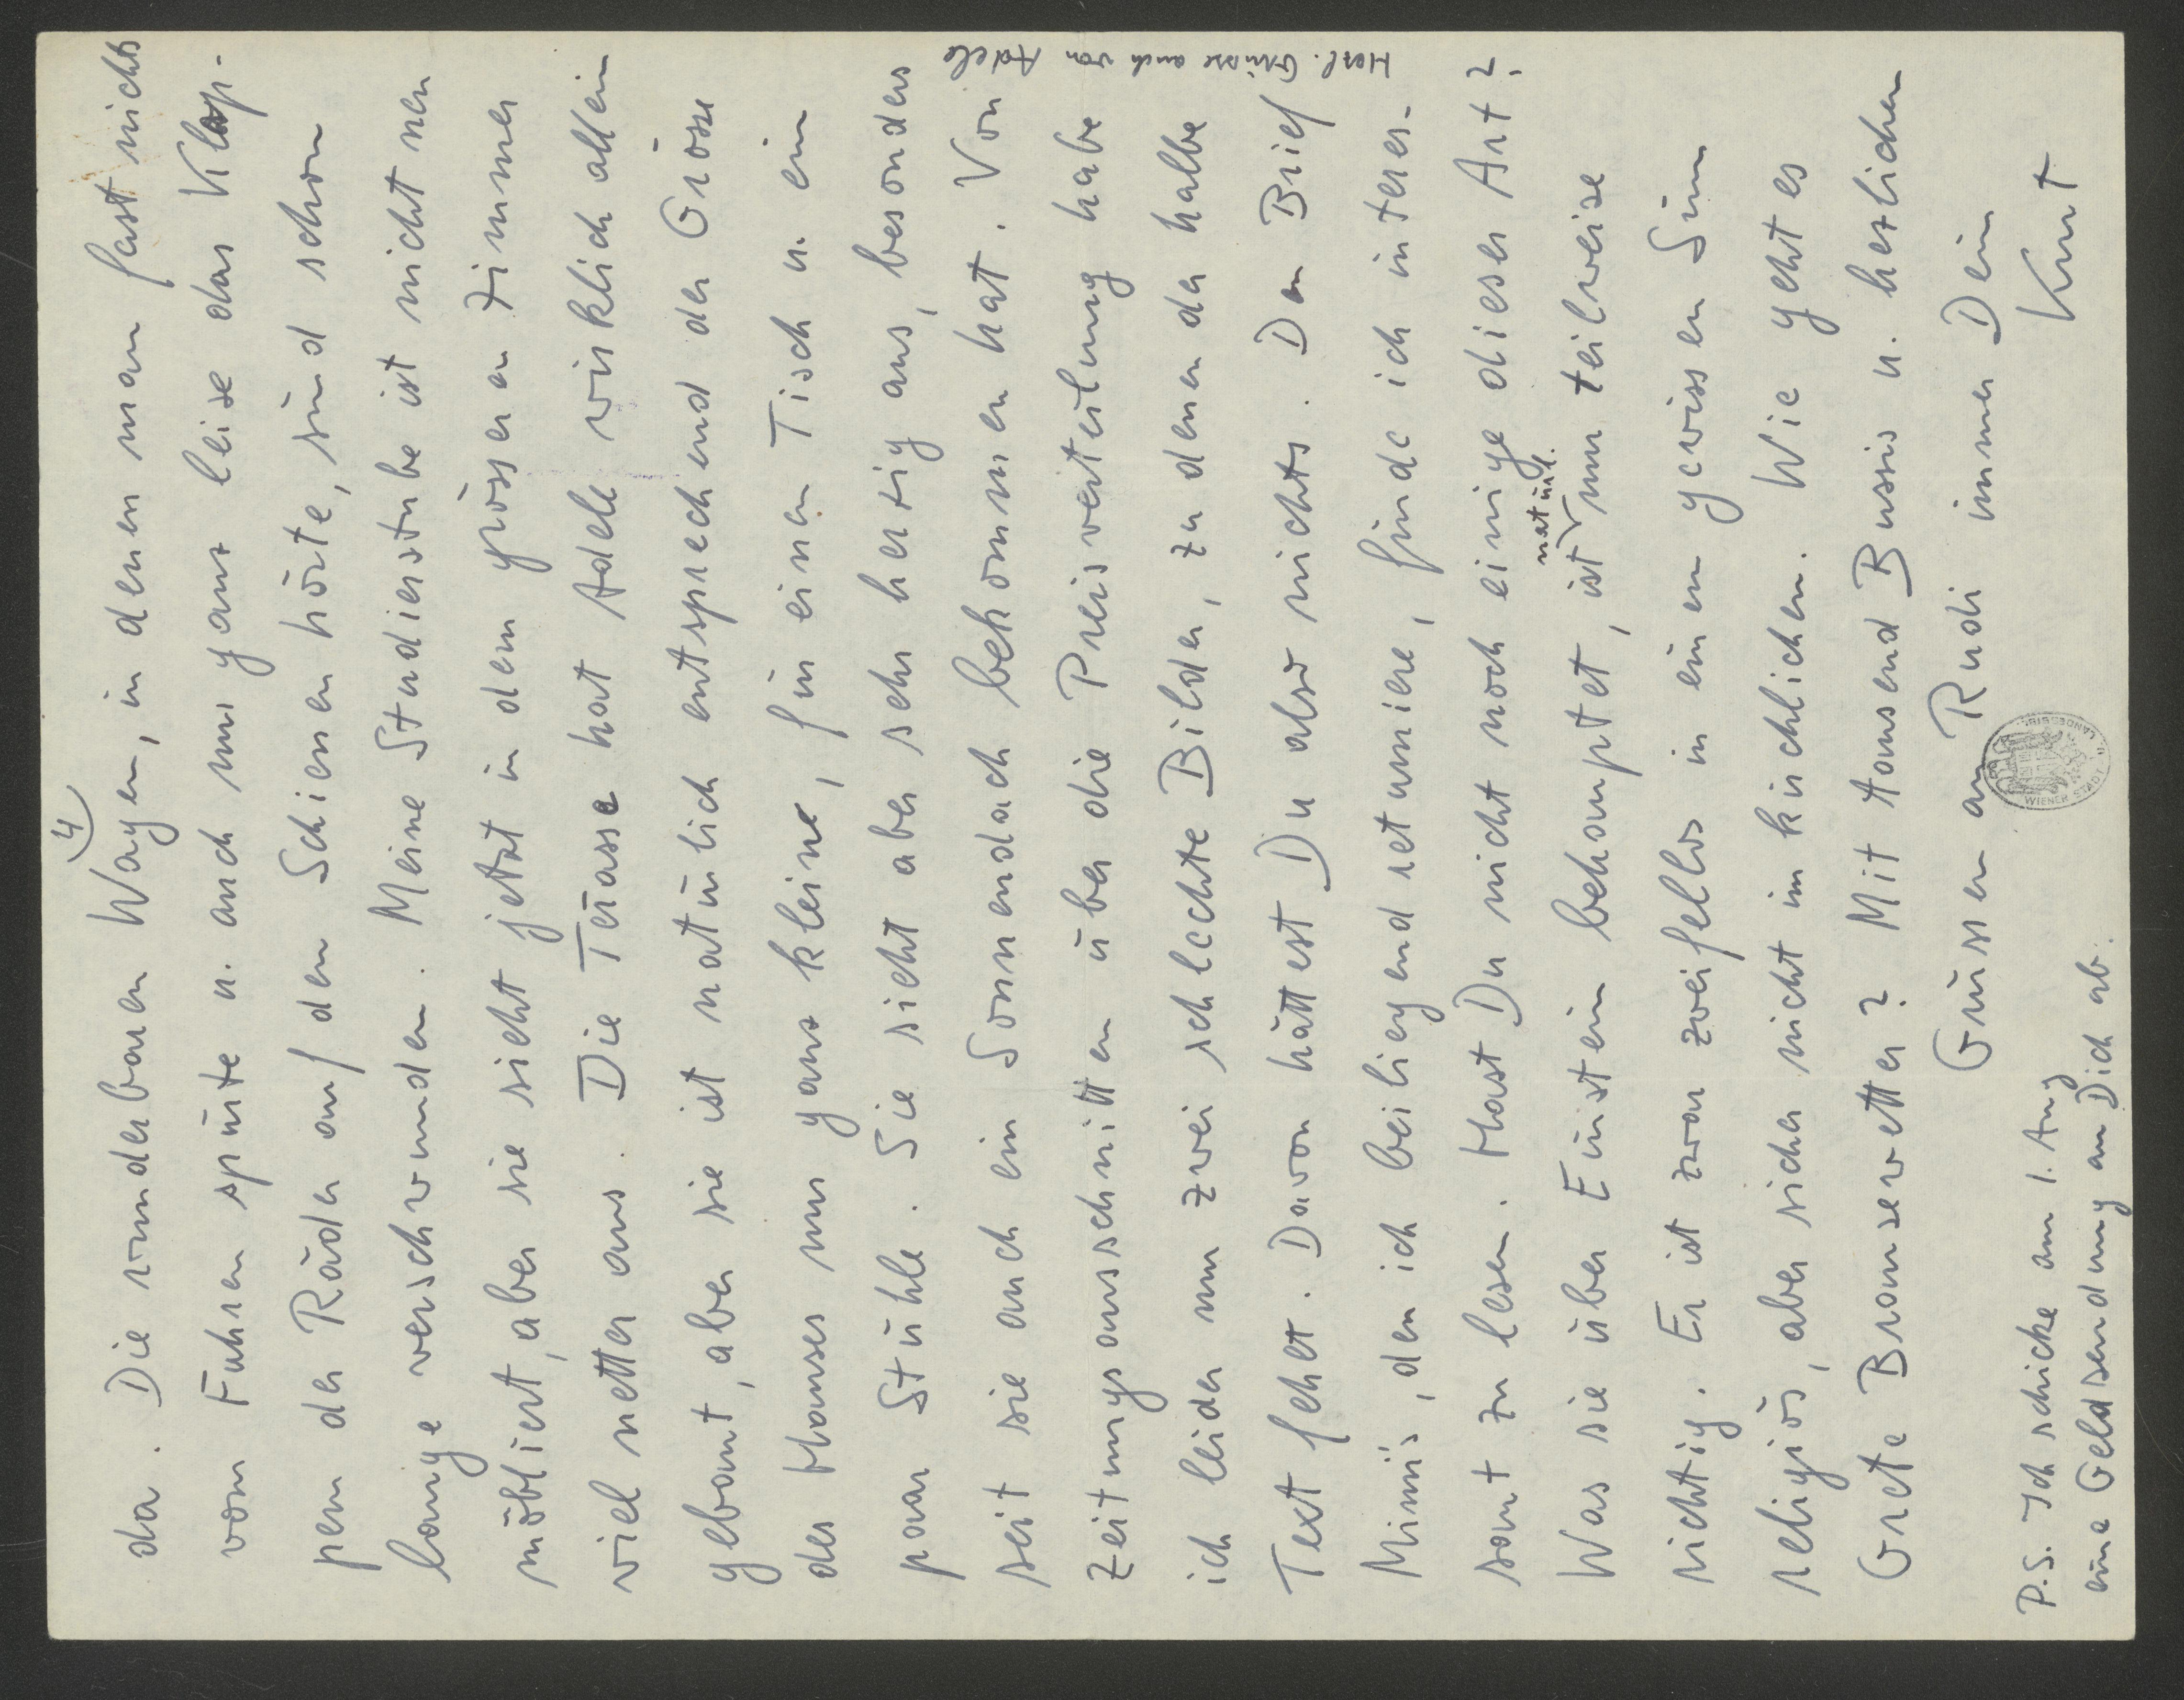 4)
da. Die wunderbaren Wagen, in denen man fast nichts
vom Fahren spürte u. auch nur ganz leise das Klap-
pern der Räder auf den Schienen hörte, sind schon
lange verschwunden. Meine Studierstube ist nicht neu
möbliert, aber sie sieht jetzt in dem grösseren Zimmer
viel netter aus. Die Terasse hat Adele wirklich allein
gebaut, aber sie ist natürlich entsprechend der Grösse
des Hauses nur ganz kleine, für einen Tisch u. ein
paar Stühle. Sie sieht aber sehr herzig aus, besonders
seit sie auch ein Sonnendach bekommen hat. Von
Zeitungsausschnitten über die Preisverteilung habe
ich leider nur zwei schlechte Bilder, zu denen der halbe
Text fehlt. Davon hättest Du also nichts. Den Brief
Mimi's, den ich beiliegend retuniere, finde ich interes-
sant zu lesen. Hast Du nicht noch einige dieser Art?
Was sie über Einstein behauptet, ist natürl. nur teilweise
richtig. Er ist zwar zweifellos in einem gewissen Sinn
religiös, aber sicher nicht im kirchlichen. Wie geht es
Grete Bronsewetter? Mit tausend Bussis u. herzlichen
Grüssen an Rudi immer Dein
Kurt
P.S. Ich schicke am 1. Aug
eine Geldsendung an Dich ab.
Herzl. Grüsse auch
Adele
WIENER STADT U.